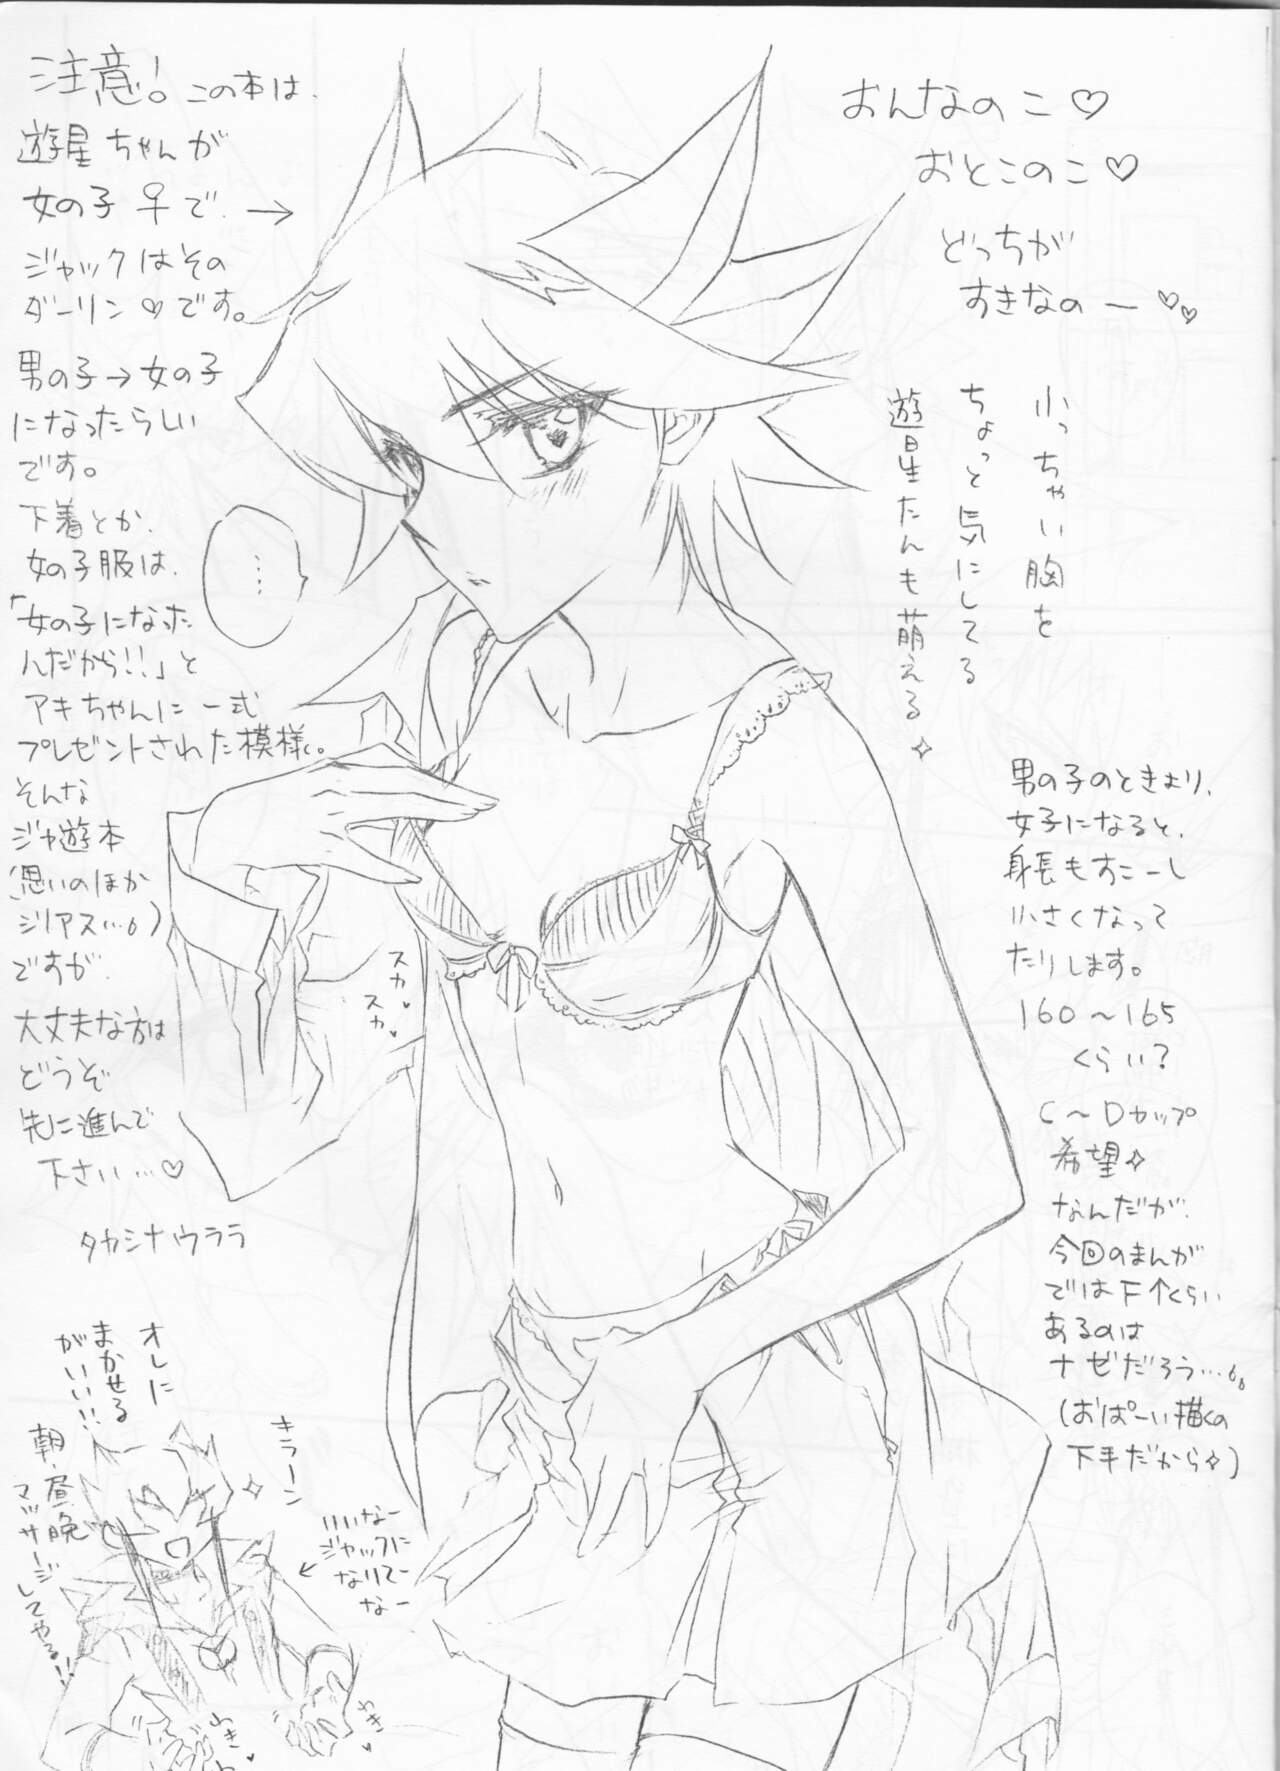 注意! この本は、
遊星ちゃんが
女の子♀で、→
ジャックはその
ダーリン♡です。
男の子→女の子
になったらしい
です。
下着とか、
女の子服は、
「女の子になった
んだから!!」と
アキちゃんに一式
プレゼントされた模様。
そんな
ジャ遊本
(思いのほか
シリアス…)
ですが、
大丈夫な方は
どうぞ
先に進んで
下さい…♡
タカシナウララ
……
おんなのこ♡
おとこのこ♡
どっちが
すきなのー♡♡
小っちゃい胸を
ちょっと気にしてる
遊星たんも萌える✧
男の子のときより、
女子になると、
身長もすこーし
小さくなって
たりします。
160～165
くらい?
C～Dカップ
希望✧
なんだが、
今回のまんが
では F↑くらい
あるのは
ナゼだろう…
(おぱーい描くの
下手だから✧)
スカ♥
スカ♥
オレに
まかせる
がいい!!
朝、昼、晩
マッサージ
してやる!!
キラーン
いいなー
ジャックに
なりてー
なー
わき♥
わき♥